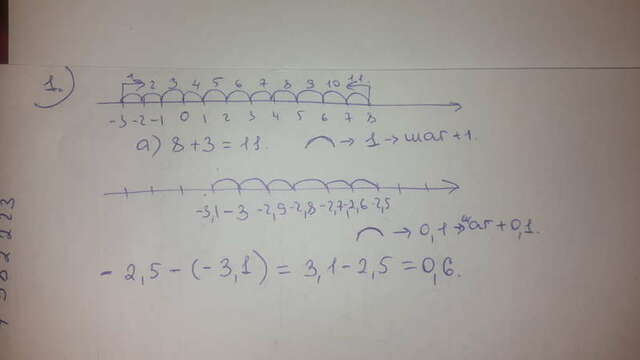 1.)
1 2 3 4 5 6 7 8 9 10 11
-3 -2 -1 0 1 2 3 4 5 6 7 8
а) 8+3=11. → 1 → шаг +1.
-3,1 -3 -2,9 -2,8 -2,7 -2,6 -2,5
→ 0,1 → шаг + 0,1.
- 2,5 - (-3,1) = 3,1 - 2,5 = 0,6.